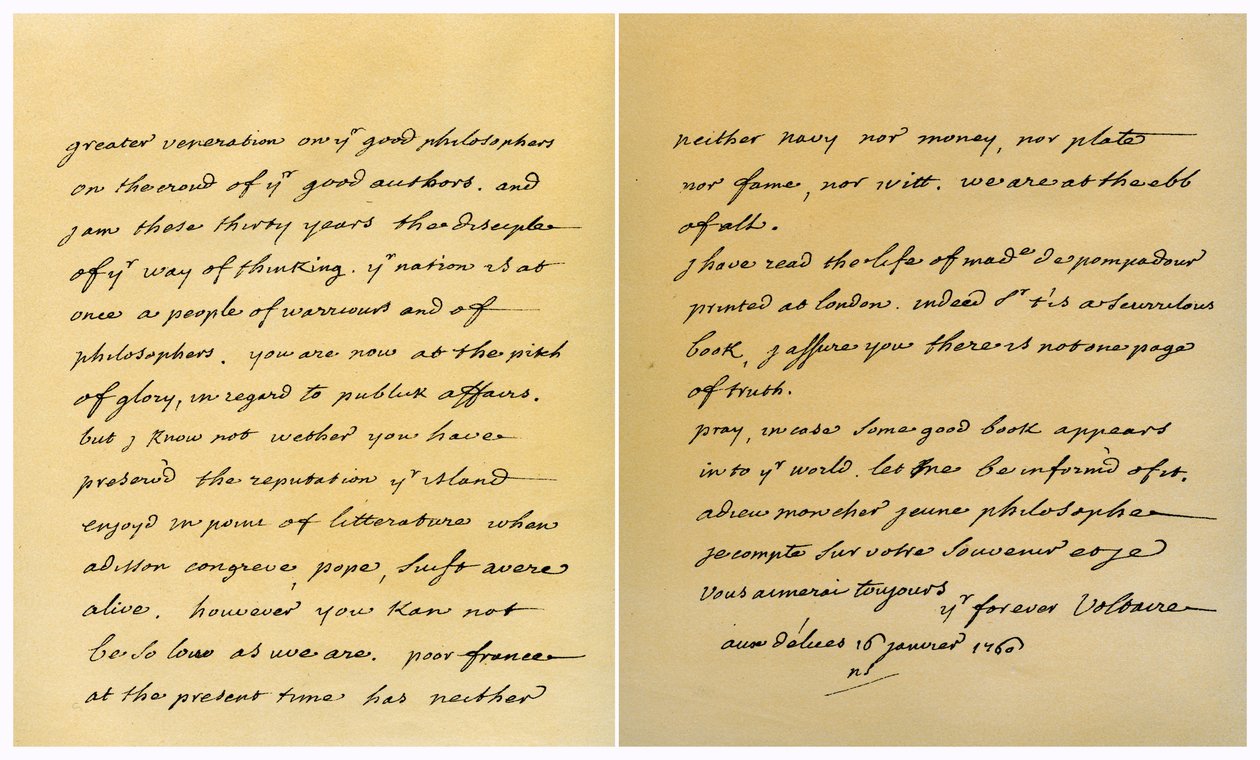 greater veneration on yʳ good philosophers
on the croud of yʳ good authors. and
j am these thirty years the disciple
of yʳ way of thinking. yʳ nation is at
once a people of warriours and of
philosophers. you are now at the pitch
of glory, in regard to publick affairs.
but j know not wether you have
preserv'd the reputation yʳ island
enjoy'd in point of litterature when
adisson congreve, pope, swift avere
alive. however you kan not
be so low as we are. poor france
at the present time has neither
neither navy nor money, nor plate
nor fame, nor witt. we are at the ebb
of all.
j have read the life of madᵉ de pompadour
printed at london. indeed sʳ t'is a scurrilous
book, j assure you there is not one page
of truth.
pray, in case some good book appears
in to yʳ world. let me be inform'd of it.
adieu mon cher jeune philosophe
je compte sur votre souvenir et je
vous aimerai toujours
yʳ forever Voltaire
aux délices 16 janvier 1760